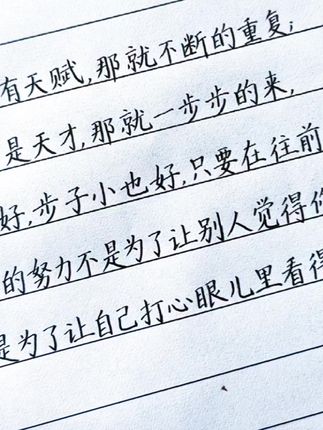 有天赋,那就不断的重复;
是天才,那就一步步的来,
好,步子小也好,只要在往前
的努力不是为了让别人觉得你
是为了让自己打心眼儿里看得